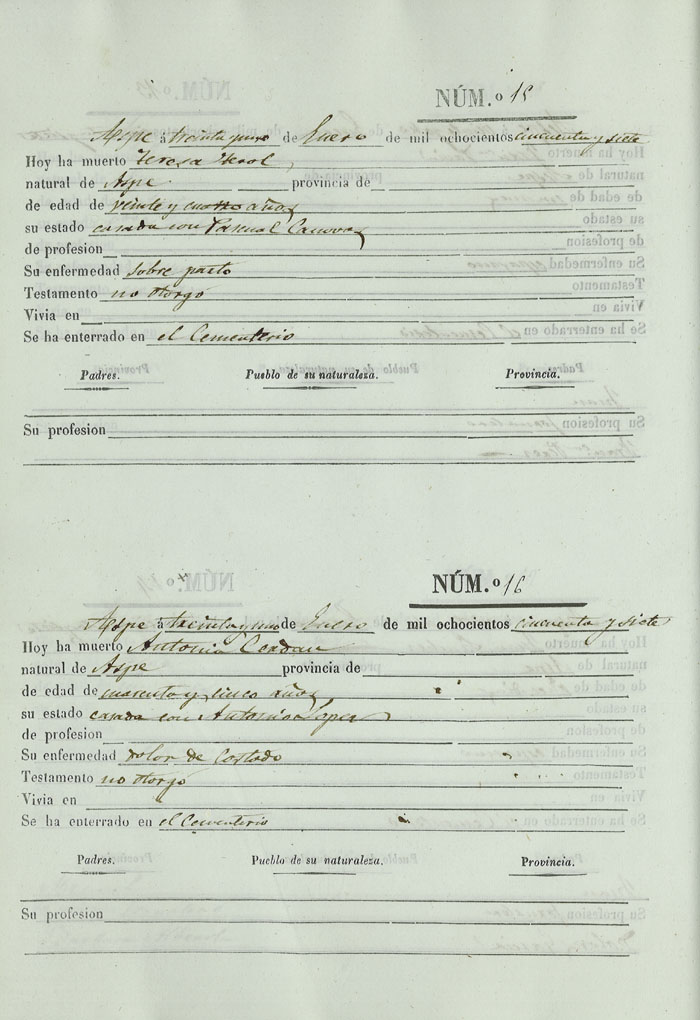 NÚM.º 15
Aspe á treinta y uno de Enero de mil ochocientos cincuenta y siete
Hoy ha muerto Teresa
natural de Aspe provincia de
de edad de veinte y cuatro años
su estado casada con Pascual Canovas
de profesion
Su enfermedad sobre parto
Testamento no otorgó
Vivia en
Se ha enterrado en el Cementerio
Padres. Pueblo de su naturaleza. Provincia.
Su profesion
NÚM.º 16
Aspe á treinta y uno de Enero de mil ochocientos cincuenta y siete
Hoy ha muerto Antonia Cerdan
natural de Aspe provincia de
de edad de cuarenta y cinco años
su estado casada con Antonio Lopez
de profesion
Su enfermedad dolor de Costado
Testamento no otorgó
Vivia en
Se ha enterrado en el Cementerio
Padres. Pueblo de su naturaleza. Provincia.
Su profesion